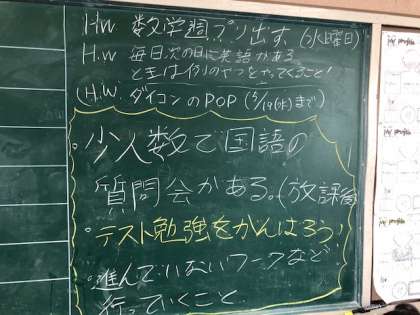 HW 数学週プリ出す(水曜日)
H.W 毎日次の日に英語がある
ときは例のやつをやってくること!
(H.W. ダイコンのPOP (5/19(水)まで)
・少人数で国語の
質問会がある。(放課後
・テスト勉強をがんばろう!
・進んでいないワークなど
行っていくこと